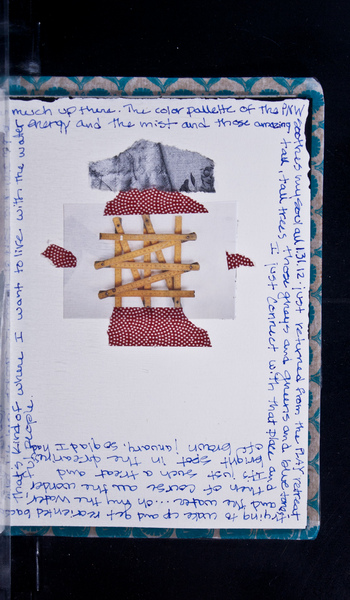 much up there. The color pallette of the PNW
energy and the mist and those amazing
soothes my soul all 1.31.12. just returned from the PLAY retreat
tall, tall trees, those greys and greens and blue forest
I just connect with that place and
trying to wake up and get reoriented
and the water ..... oh my the water
then of course all the wonder
It's just such a treat and
bright spot in the
brown january. so glad I
that's kind of where I want to live with the water
people.